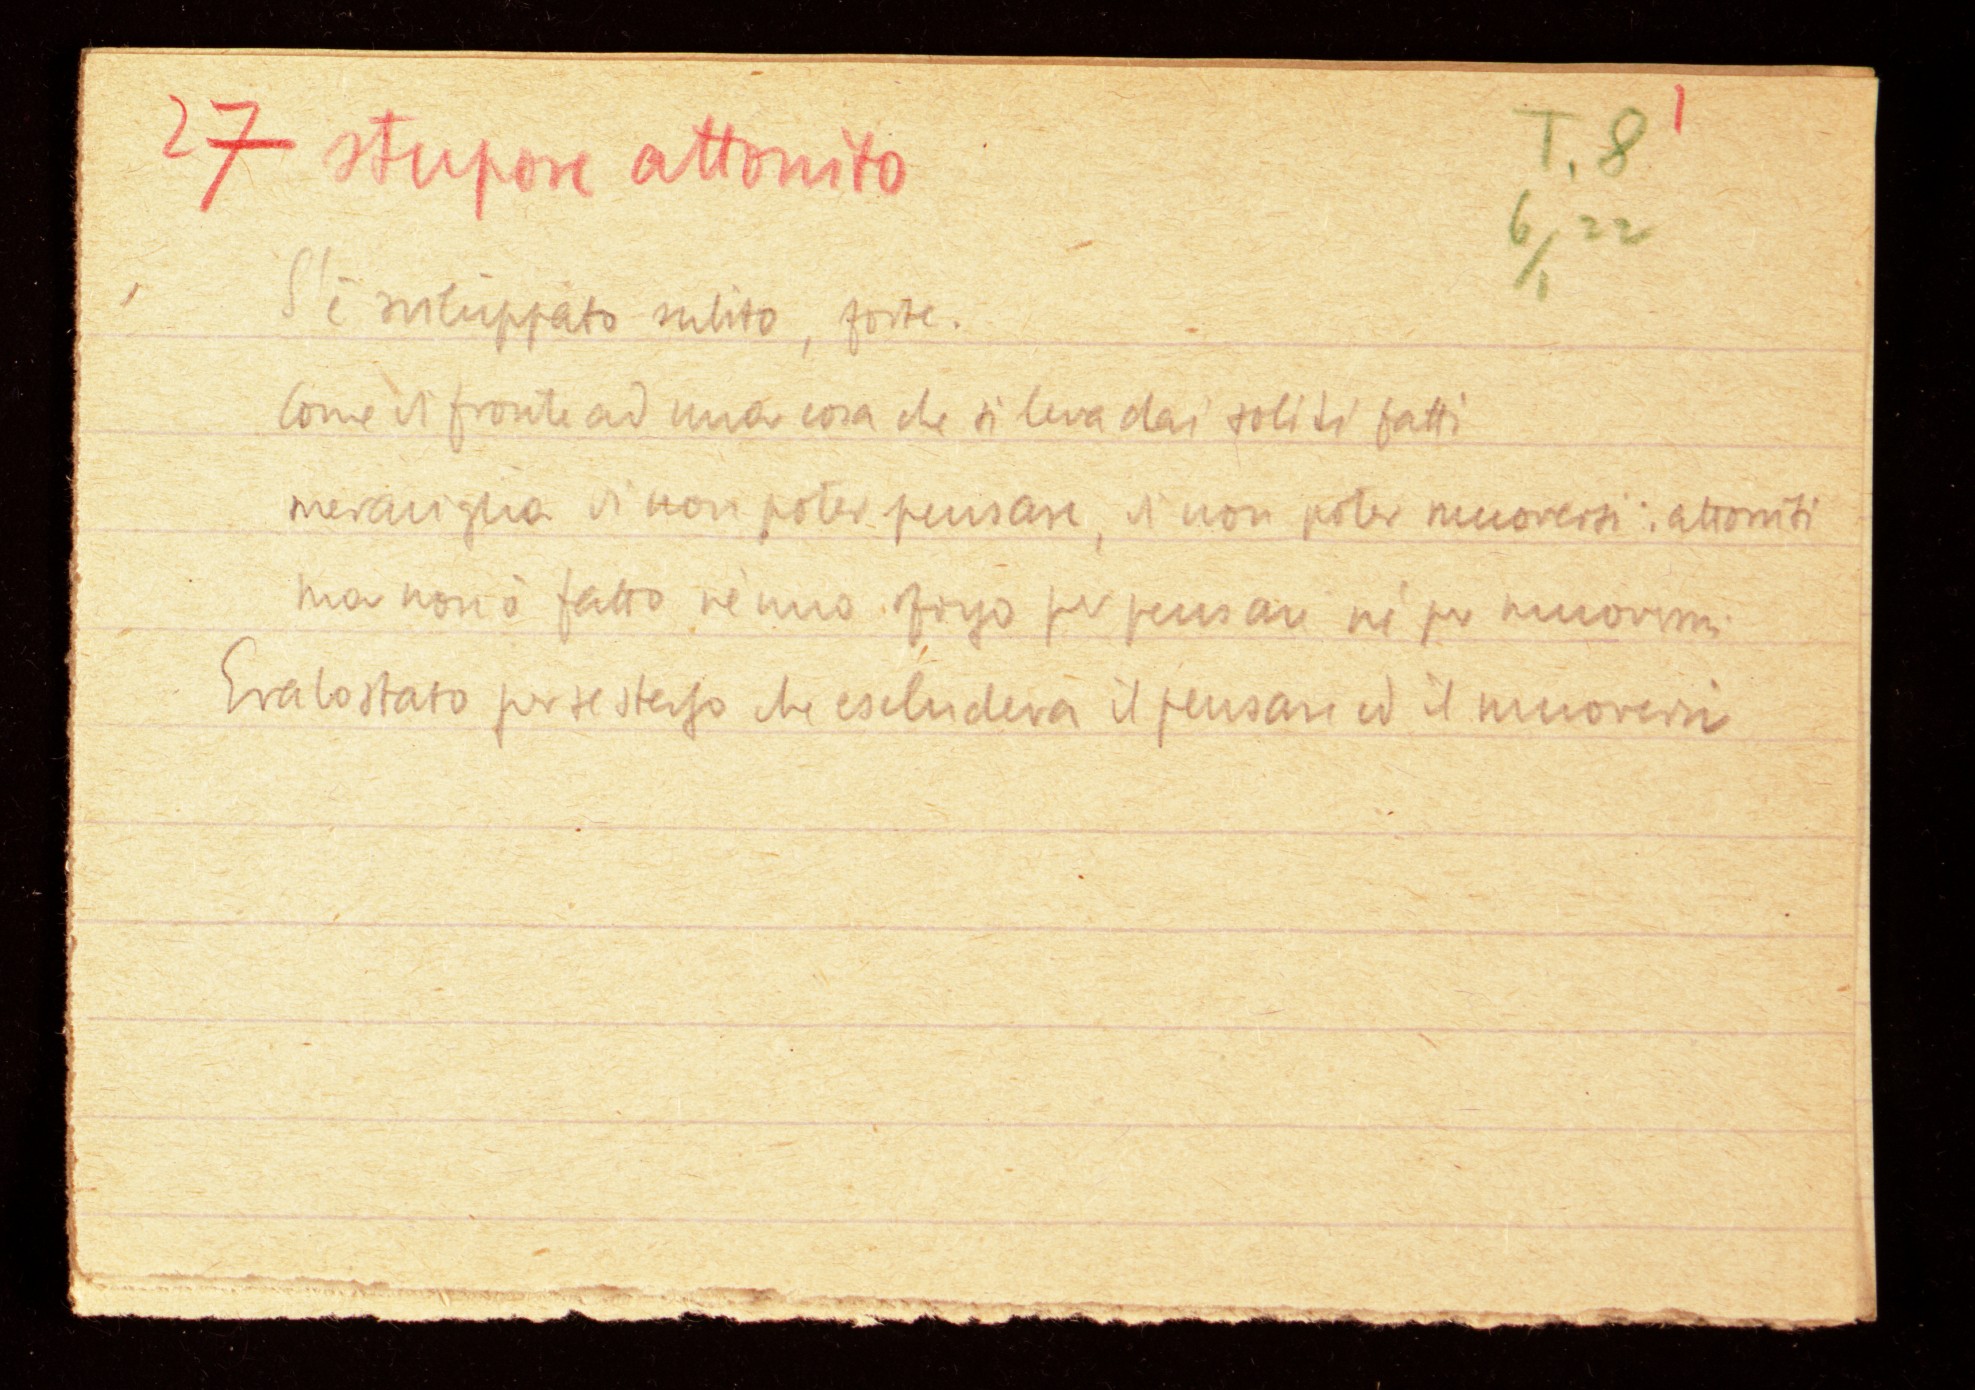 27 stupore attonito
T. 8 1
6/1 22
S'è sviluppato subito, forte.
Come di fronte ad una cosa che si leva dai soliti fatti
meraviglia di non poter pensare, di non poter muoversi: attoniti
ma non ò fatto nè uno sforzo per pensare nè per muovermi
Era lo stato per se stesso che escludeva il pensare ed il muoversi